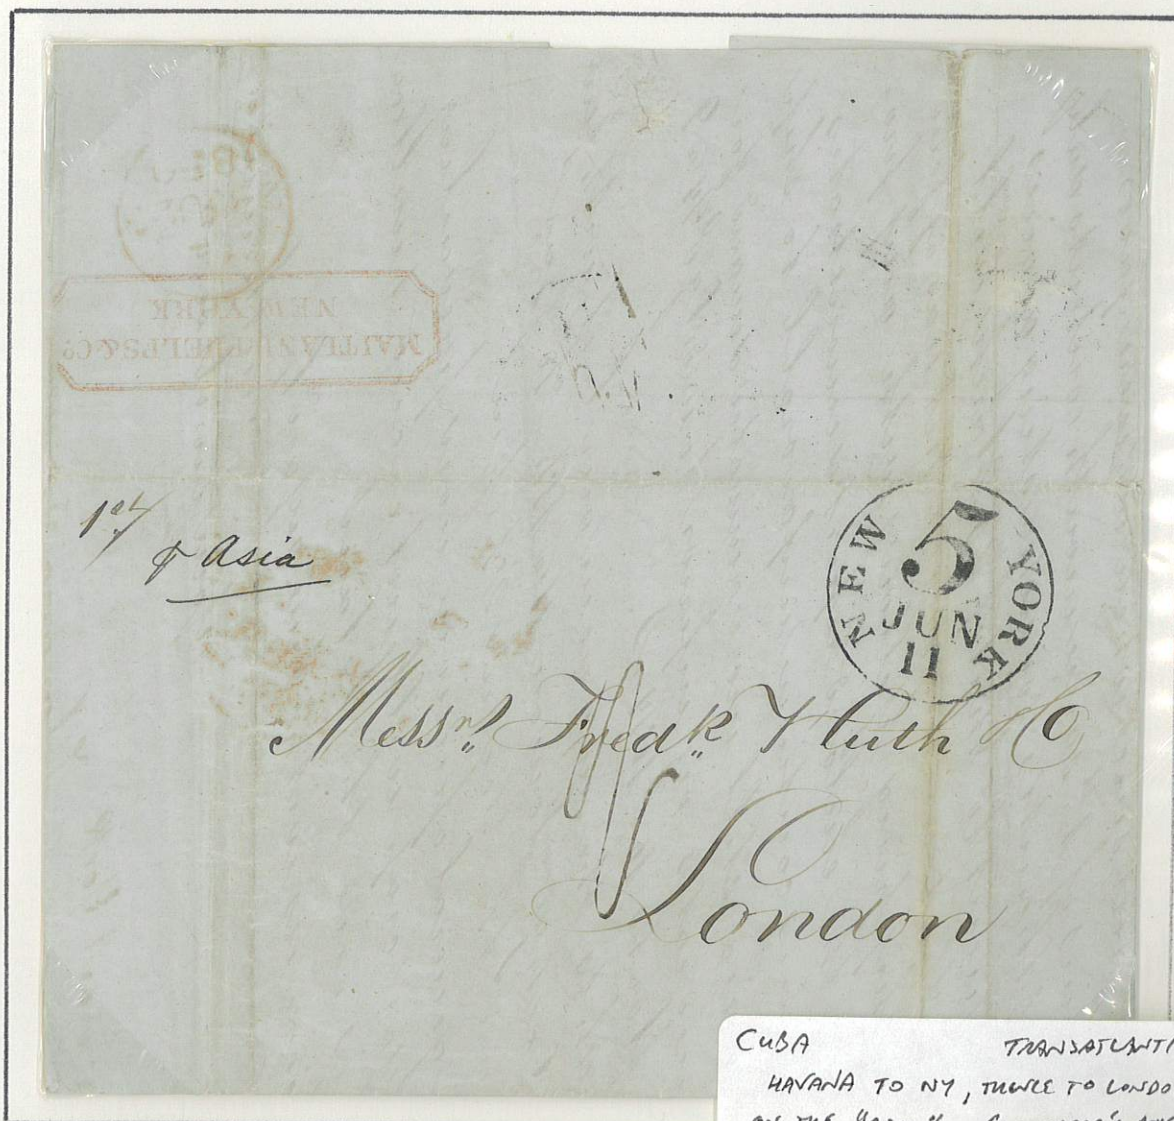 MAITLAND PHELPS & Co
NEW YORK
p Asia
NEW YORK
5
JUN
11
Messrs Fredk Huth & Co
London
CUBA TRANSATLANTI
HAVANA TO NY, THENCE TO LONDO
ON THE